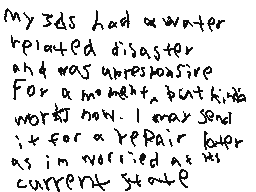 my 3ds had a water
related disaster
and was unresponsive
For a moment, but kinda
works now. I may send
it for a repair later
as im worried at its
current state